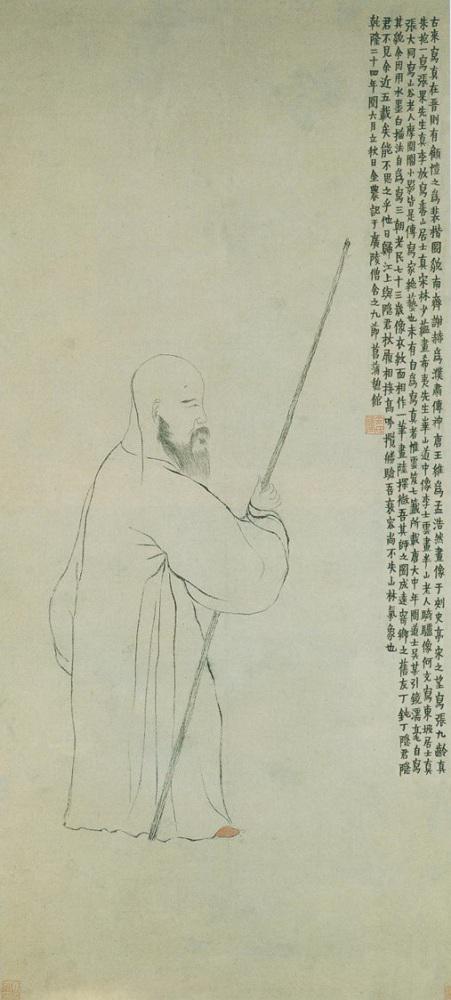 古來寫真在晉則有顧愷之為裴楷圖貌南齊謝赫為濮肅傳神唐王維為孟浩然畫像于刺史亭宋之望寫張九齡真
朱抱一寫張果先生真李放寫香山居士真宋林少蘊畫希夷先生華山道中像李士雲畫半山老人騎驢像何充寫東坡居士真
張大同寫山谷老人摩圍閣小影皆是傳寫家絕藝也未有自為寫真者惟雲笈七籤所載唐大中年間道士吳某引鏡濡毫自寫
其貌余因用水墨白描法自為寫三朝老民七十三歲像衣紋面相作一筆畫陸探微吾其師之圖成遠寄鄉之舊友丁鈍丁隱君隱
君不見余近五載矣能不思之乎他日歸江上與隱君杖履相接高吟攬勝驗吾衰容尚不失山林氣象也
乾隆二十四年閏六月立秋日金農記于廣陵僧舍之九節菖蒲憩館